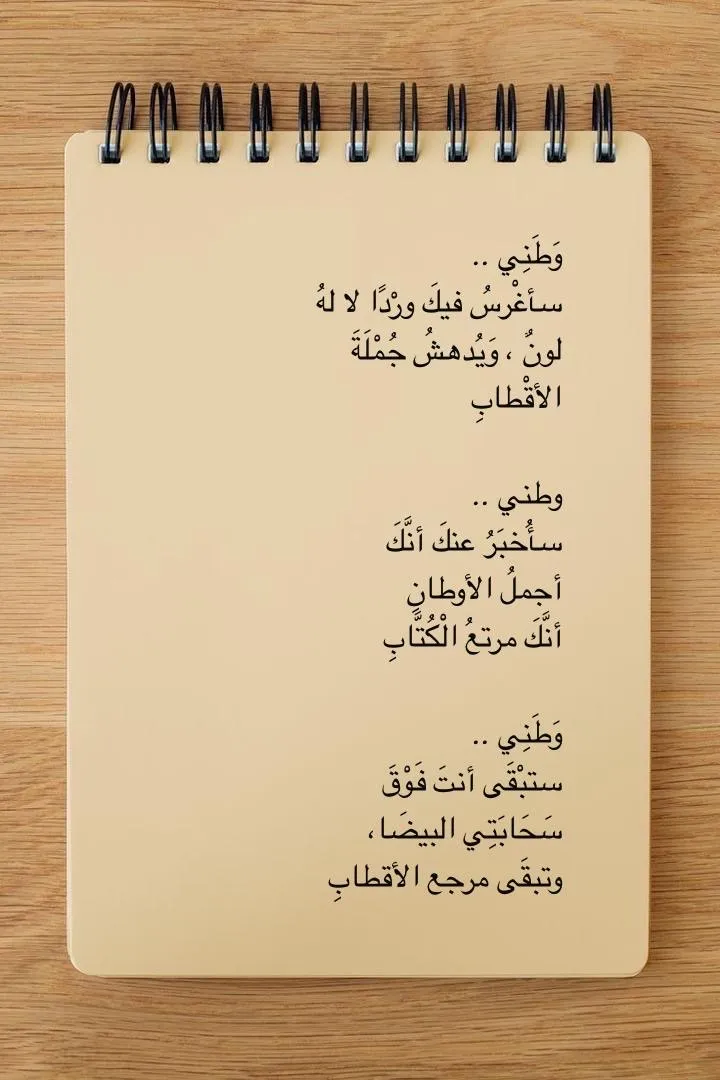 وَطَنِي ..
سأغْرسُ فيكَ ورْدًا لا لهُ
لونٌ ، وَيُدهشُ جُمْلَةَ
الأقْطابِ
وطني ..
سأُخبَرُ عنكَ أنَّكَ
أجملُ الأوطانِ
أنَّكَ مرتعُ الْكُتَّابِ
وَطَنِي ..
ستبْقَى أنتَ فَوْقَ
سَحَابَتِي البيضَا،
وتبقَى مرجع الأقطابِ